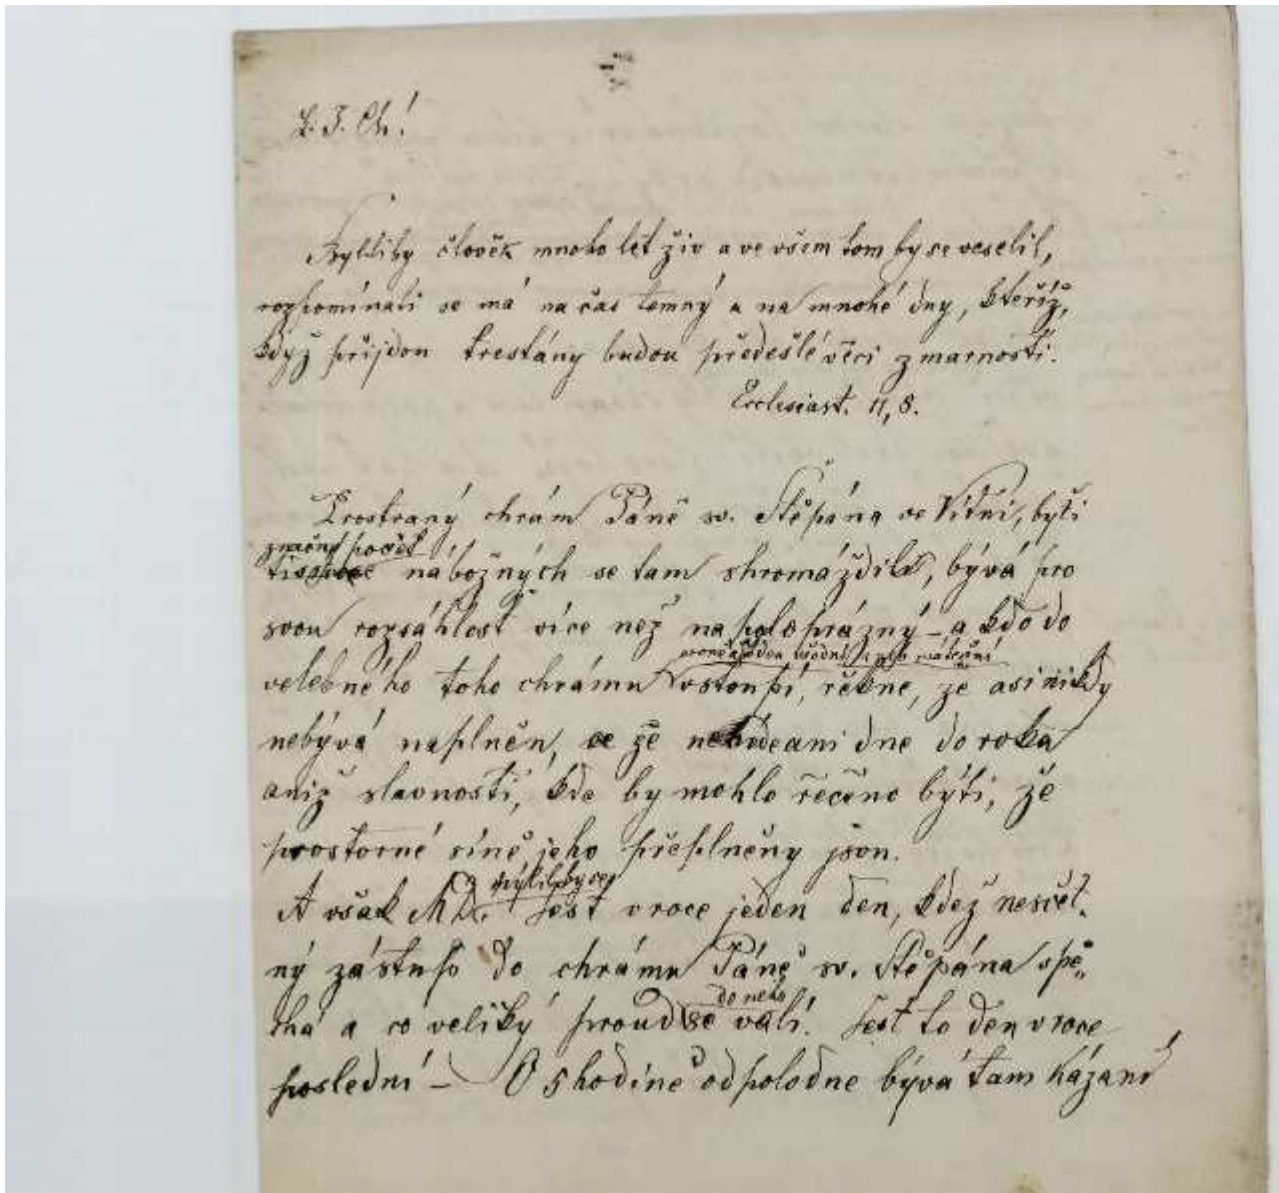 Z. J. Ch!
Byltiby člověk mnoho let živ a ve všem tom by se veselil,
rozpomínati se má na čas temný a na mnohé dny, kteříž,
když přijdou trestány budou předešlé věci z marnosti.
Ecclesiast. 11, 8.
Prostraný chrám Páně sv. Štěpána ve Vídni, byťi
značný počet
tisíce nábožných se tam shromáždilo, bývá pro
svou rozsáhlost více než na polo prázný – a kdo do
velebného toho chrámu vstoupí, řekne, že asi nikdy
nebývá naplněn, že ani dne do roka
aniž slavnosti, kde by mohlo řečeno býti, že
prostorné síně jeho přeplněny jsou.
mýlil by se
A však M. D. Jest v roce jeden den, kdež nesčet-
ný zástup do chrámu Páně sv. Štěpána spě-
do neho
chá a co veliký proud se valí. Jest to den v roce
poslední – O 5 hodině odpoledne bývá tam kázaní